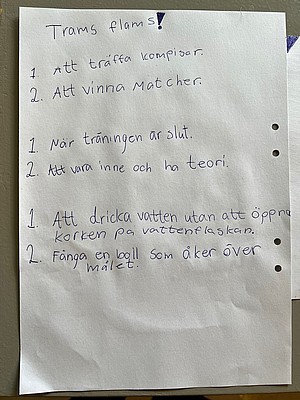 Trams flams!
1. Att träffa kompisar.
2. Att vinna Matcher.
1. När träningen är slut.
2. Att vara inne och ha teori.
1. Att dricka vatten utan att öppna
korken på vattenflaskan.
2. Fånga en boll som åker över
målet.